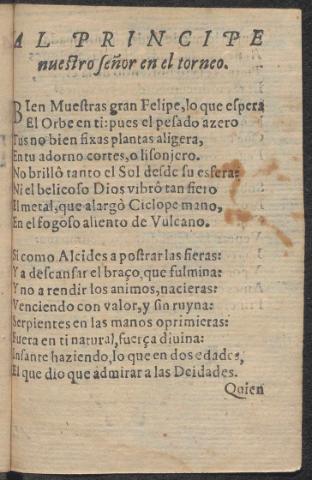 AL PRINCIPE
nuestro señor en el torneo.
BIen Muestras gran Felipe, lo que espera
El Orbe en ti: pues el pesado azero
Tus no bien fixas plantas aligera,
En tu adorno cortes, o lisonjero.
No brillô tanto el Sol desde su esfera:
Ni el belicoso Dios vibrô tan fiero
El metal, que alargò Ciclope mano,
En el fogoso aliento de Vulcano.
Si como Alcides a postrar las fieras:
Y a descansar el braço, que fulmina:
Y no a rendir los animos, nacieras:
Venciendo con valor, y sin ruyna:
Serpientes en las manos oprimieras:
Fuera en ti natural, fuerça diuina:
Infante haziendo, lo que en dos edades,
El que dio que admirar a las Deidades.
Quien